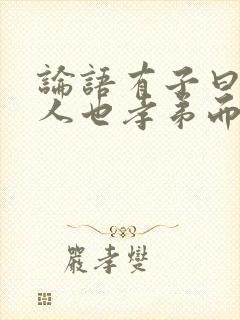 論語有子曰
人也孝弟而
嚴孝燮